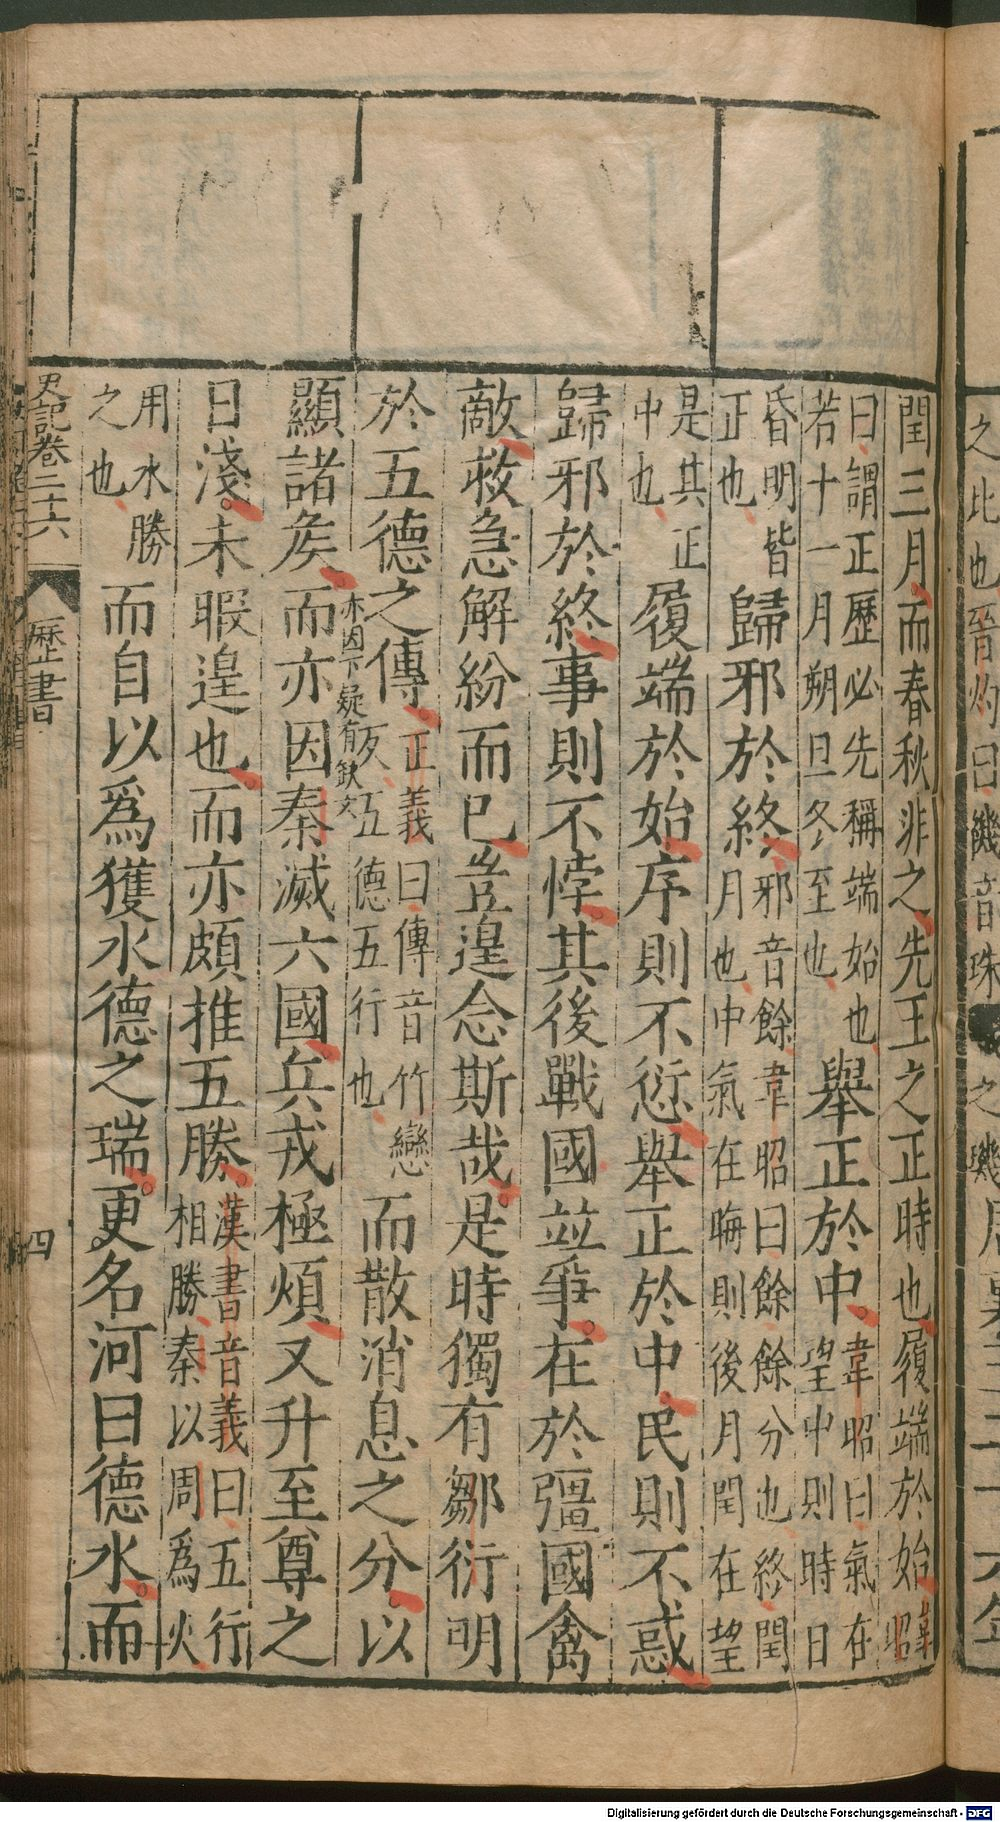 之比也晉灼曰璣音珠璣之璣
閏三月而春秋非之先王之正時也履端於始韋昭
曰謂正歷必先稱端始也若十一月朔旦冬至也舉正於中韋昭曰氣在望中則時日
昏明皆正也歸邪於終邪音餘韋昭曰餘餘分也終閏月也中氣在晦則後月閏在望
是其正中也履端於始序則不愆舉正於中民則不惑
歸邪於終事則不悖其後戰國並爭在於彊國禽
敵救急解紛而已豈遑念斯哉是時獨有鄒衍明
於五德之傳正義曰傳音竹戀反五德五行也而散消息之分以
亦因下疑有缺文
顯諸矦而亦因秦滅六國兵戎極煩又升至尊之
日淺未暇遑也而亦頗推五勝漢書音義曰五行相勝秦以周為火
用水勝之也而自以爲獲水德之瑞更名河曰德水而
史記卷二十六 歷書 四
Digitalisierung gefördert durch die Deutsche Forschungsgemeinschaft - DFG